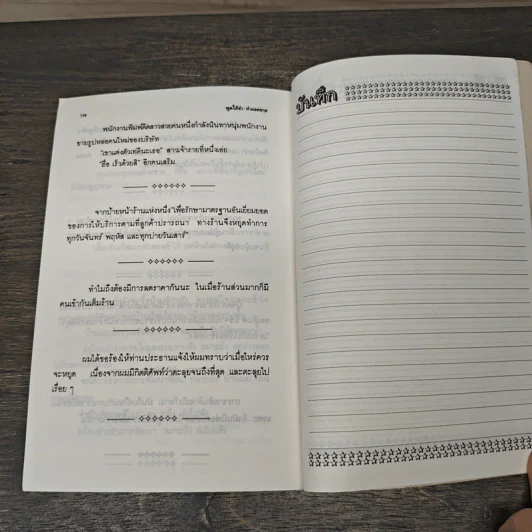 พูดให้ขำ ทำยอดขาย
พนักงานพิมพ์ดีดสาวสวยคนหนึ่งกำลังนินทาหนุ่มพนักงาน
ขายรูปหล่อคนใหม่ของบริษัท
"เขาแต่งตัวเท่ดีนะเธอ" สาวเจ้ารายที่หนึ่งเอ่ย
"ฮื่อ เร็วด้วยสิ" อีกคนเสริม
จากป้ายหน้าร้านแห่งหนึ่ง"เพื่อรักษามาตรฐานอันเยี่ยมยอด
ของการให้บริการตามที่ลูกค้าปรารถนา ทางร้านจึงหยุดทำการ
ทุกวันจันทร์ พฤหัส และทุกบ่ายวันเสาร์"
ทำไมถึงต้องมีการลดราคากันนะ ในเมื่อร้านส่วนมากก็มี
คนเข้ากันเต็มร้าน
ผมได้ขอร้องให้ท่านประธานแจ้งให้ผมทราบว่าเมื่อไหร่ควร
จะหยุด เนื่องจากผมมีกิตติศัพท์ว่าตะลุยจนถึงที่สุด และตะลุยไป
เรื่อย ๆ
บันทึก